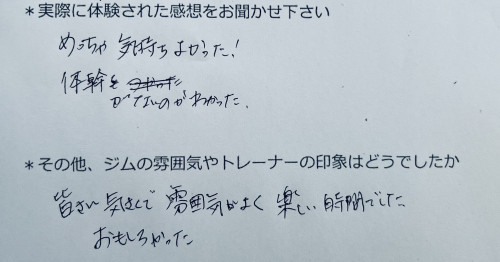 *実際に体験された感想をお聞かせ下さい
めっちゃ 気持ちよかった!
体幹を
がないのがわかった.
*その他、ジムの雰囲気やトレーナーの印象はどうでしたか
皆さん 気さくで 雰囲気がよく 楽しい時間でした
おもしろかった